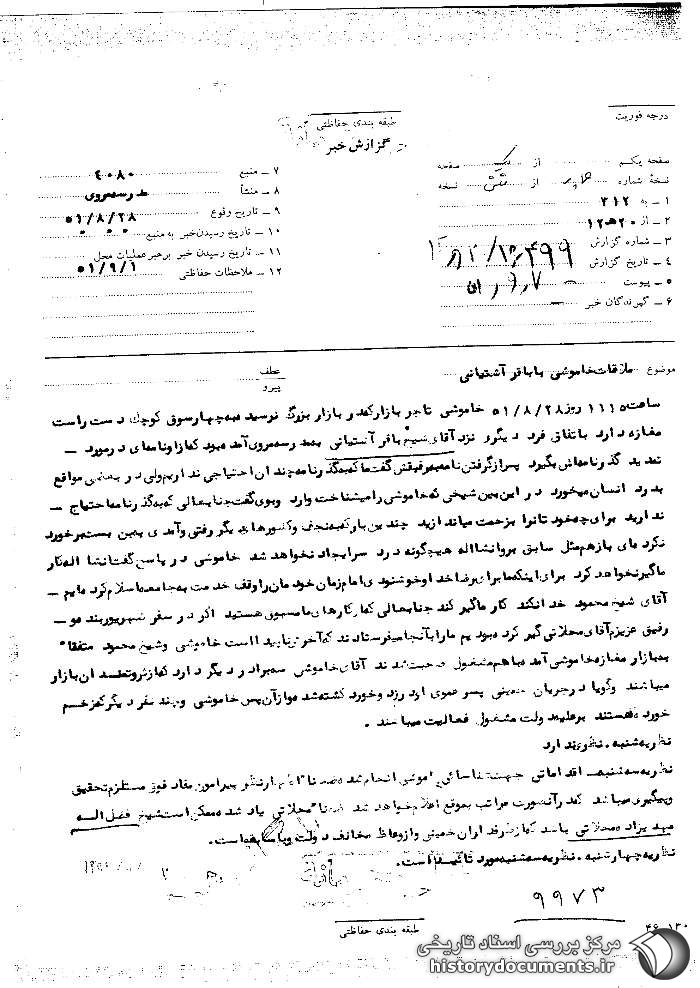 درجه فوریت
طبقه بندی حفاظتی
گزارش خبر
صفحه یکم از یک صفحه
نسخهٔ شماره از شش نسخه
۱ ــ به ۳۱۲
۲ ــ از ۲۰ ه‍ ۱۲
۳ ــ شماره گزارش
۴ ــ تاریخ گزارش
۵ ــ پیوست
۶ ــ گیرندگان خبر
۷ ــ منبع ۴۰۸۰
۸ ــ منشأ مدرسه مروی
۹ ــ تاریخ وقوع ۵۱/۸/۲۸
۱۰ ــ تاریخ رسیدن خبر به منبع
۱۱ ــ تاریخ رسیدن خبر برهبر عملیات محل ۵۱/۹/۱
۱۲ ــ ملاحظات حفاظتی
موضوع ملاقات خاموشی با باقر آشتیانی
عطف
پیرو
روز ۵۱/۸/۲۸ خاموشی تاجر بازار که در بازار بزرگ نرسیده به چهارسوق کوچک دست راست
مغازه دارد باتفاق فرد دیگری نزد آقای شیخ باقر آشتیانی بمدرسه مروی آمده بود که از او نامه‌ای در مورد ــ
تمدید گذرنامه‌اش بگیرد پس از گرفتن نامه به رفیقش گفت ما که به گذرنامه چندان احتیاجی نداریم ولی در بعضی مواقع
بدرد انسان میخورد در این بین شیخی که خاموشی را میشناخت وارد و بوی گفت جنابعالی که به گذرنامه احتیاج ــ
ندارید برای چه خودتانرا بزحمت میاندازید چندین بار که به نجف و کشورهای دیگر رفتی و آمدی به بن بست برخورد
نکرده‌ای بازهم مثل سابق برو انشااله هیچگونه دردسر ایجاد نخواهد شد خاموشی در پاسخ گفت انشااله کار
ما گیر نخواهد کرد برای اینکه ما برای رضا خدا و خوشنودی امام زمان خودمان را وقف خدمت به جامعه اسلام کرده‌ایم ــ
آقای شیخ محمود خدا نکند کار ما گیر کند جنابعالی که از کارهای ما مسبوق هستید اگر در سفر شهریور بنده و ــ
رفیق عزیزم آقای محلاتی گیر کرده بودیم ما را بآنجا میفرستادند که آخرش ناپیدا است خاموشی و شیخ محمود متفقاً
به بازار مغازه خاموشی آمده باهم مشغول صحبت شدند آقای خاموشی سه برادر دیگر دارد که از ثروتمندان بازار
میباشند و گویا در جریان خمینی پسر عموی او در زد و خورد کشته شده و از آن پس خاموشی و چند نفر دیگر که زخم
خورده هستند برعلیه دولت مشغول فعالیت میباشند .
نظریه شنبه . نظری ندارد
نظریه سه‌شنبه . اقداماتی جهت شناسائی خاموشی انجام شده ضمناً اظهارنظر پیرامون مفاد فوق مستلزم تحقیق
و پیگیری میباشد که در آنصورت مراتب بموقع اعلام خواهد شد ضمناً محلاتی یاد شده ممکن است شیخ فضل اله
مهدیزاده محلاتی باشد که از طرفداران خمینی و از وعاظ مخالف دولت و با سابقه است .
نظریه چهارشنبه . نظریه سه‌شنبه مورد تائید است .
۹۹۷۳
طبقه بندی حفاظتی
۴۶-۱۳۰
مرکز بررسی اسناد تاریخی
historydocuments.ir